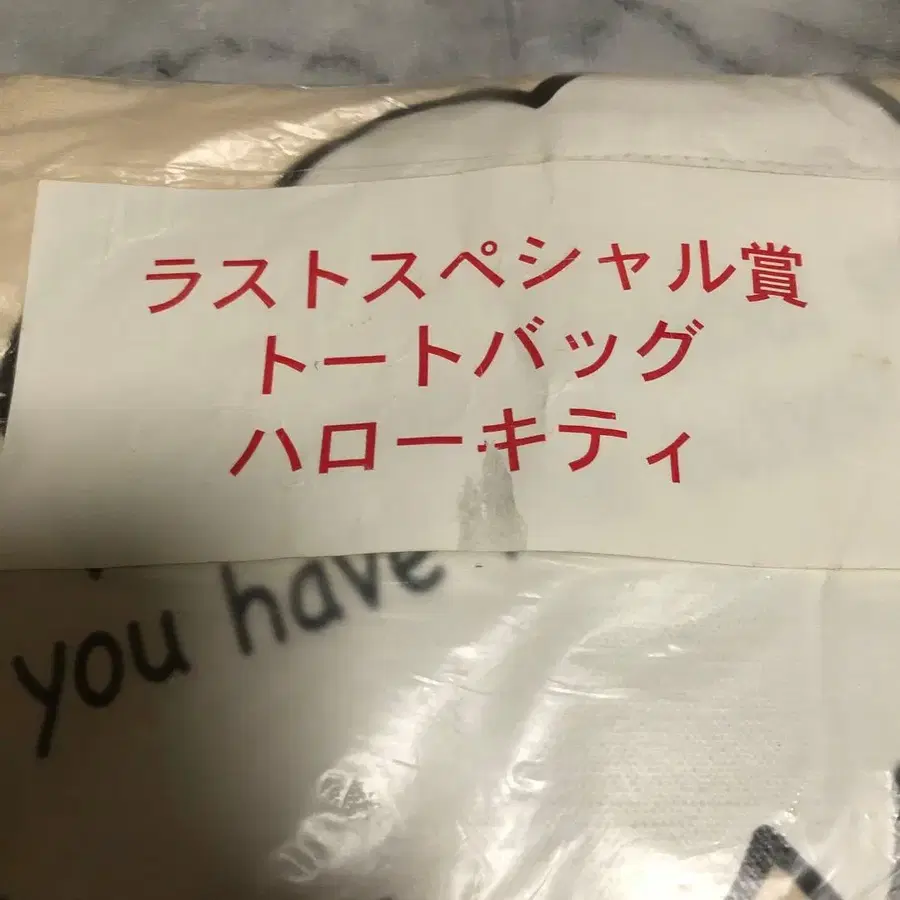 ラストスペシャル賞
トートバッグ
ハローキティ
you have